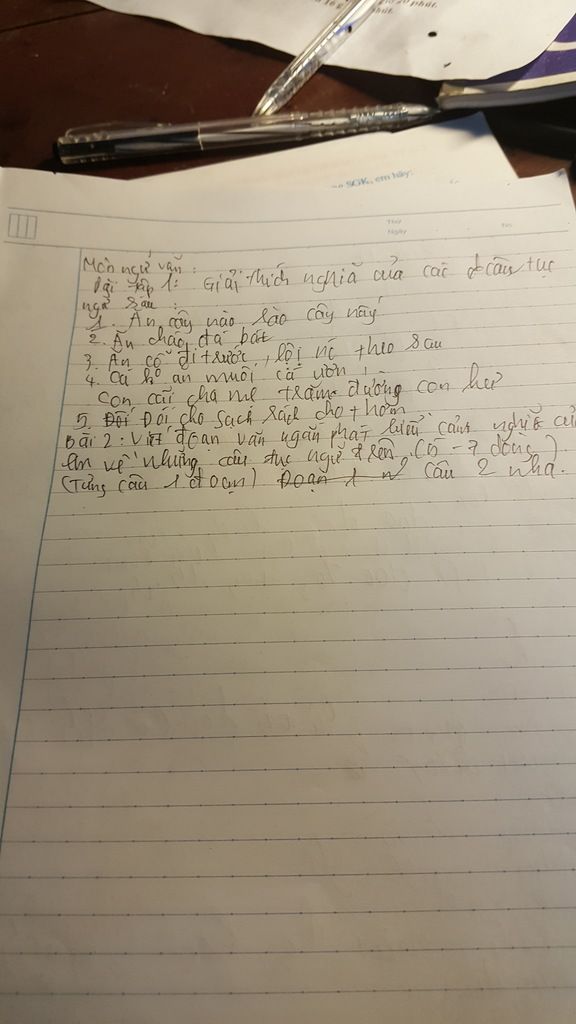 phút.
SGK, em hãy:
Thứ
Ngày
No.
Môn ngữ văn :
Bài tập 1: Giải thích nghĩa của các câu tục
ngữ sau :
1. Ăn cây nào rào cây nấy
2. Ăn cháo đá bát
3. Ăn cỗ đi trước, lội nc theo sau
4. Cá k ăn muối cá ươn
Con cãi cha mẹ trăm đường con hư
5. Đói cho sạch rách cho thơm
Bài 2: Viết đoạn văn ngắn phát biểu cảm nghĩ củ
em về những câu tục ngữ trên (5 - 7 dòng)
(Từng câu 1 đoạn) Đoạn 1 câu 2 nha.